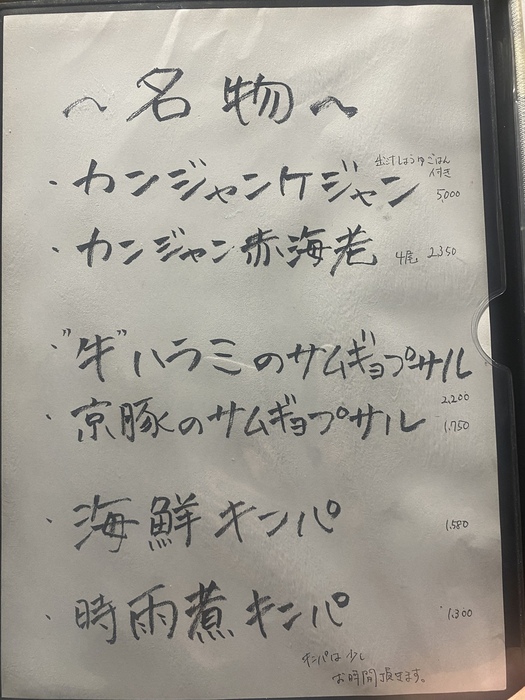 ～名物～
・カンジャンケジャン 出汁しょうゆごはん付き 5,000
・カンジャン赤海老 4尾 2,350
・"牛"ハラミのサムギョプサル 2,200
・京豚のサムギョプサル 1,750
・海鮮キンパ 1,580
・時雨煮キンパ 1,300
キンパは少し
お時間頂きます。